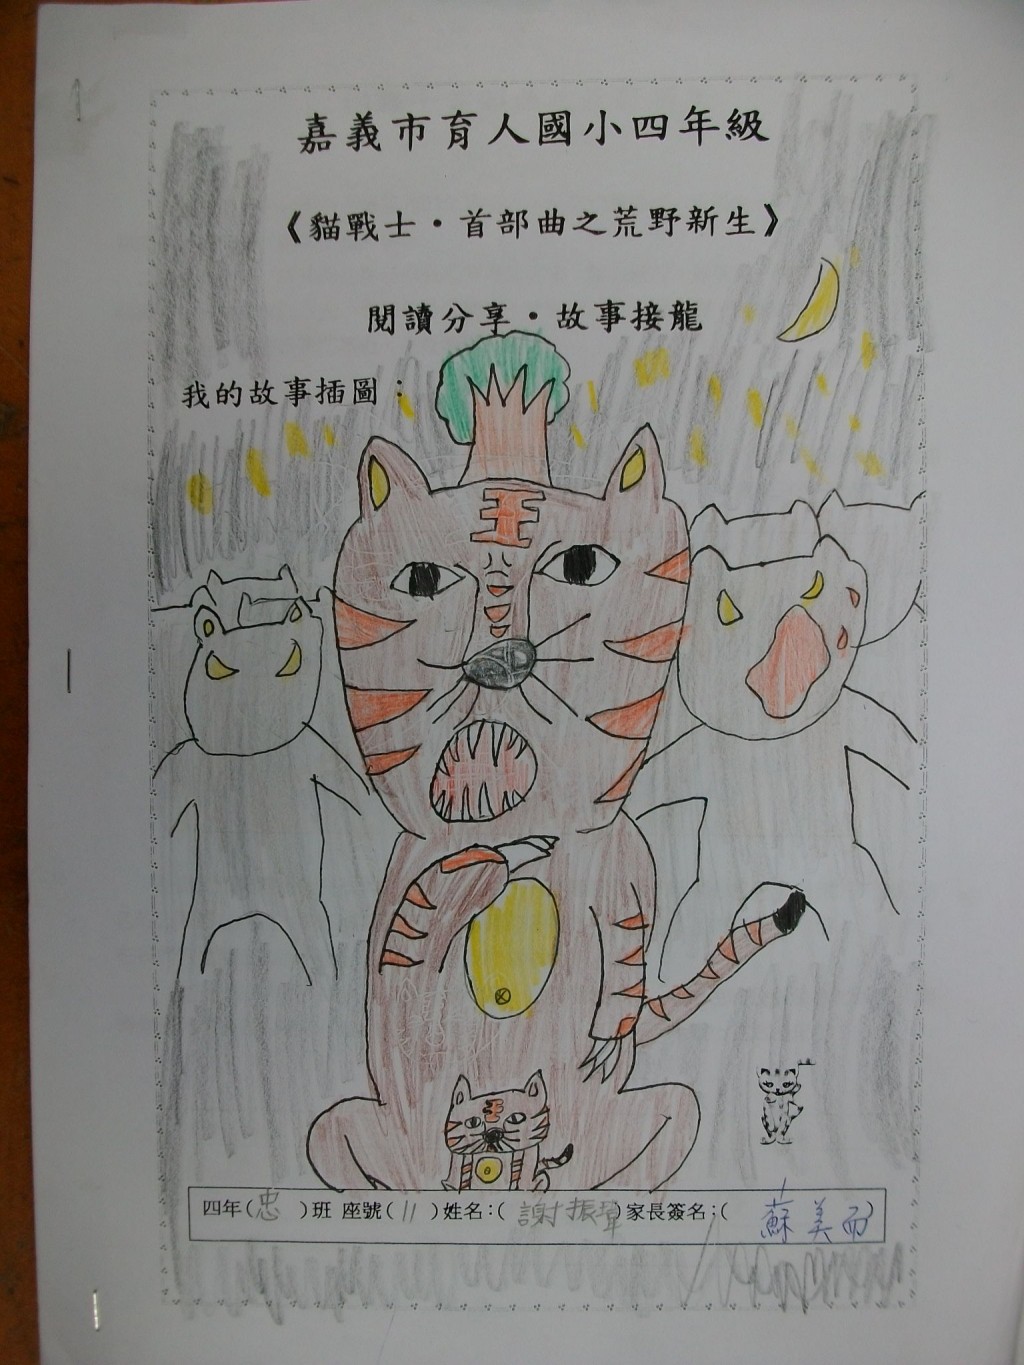 嘉義市育人國小四年級
《貓戰士・首部曲之荒野新生》
閱讀分享・故事接龍
我的故事插圖：
王
王
四年(忠 )班 座號( 11 )姓名：( 謝振瑋)家長簽名；( 蘇美而)